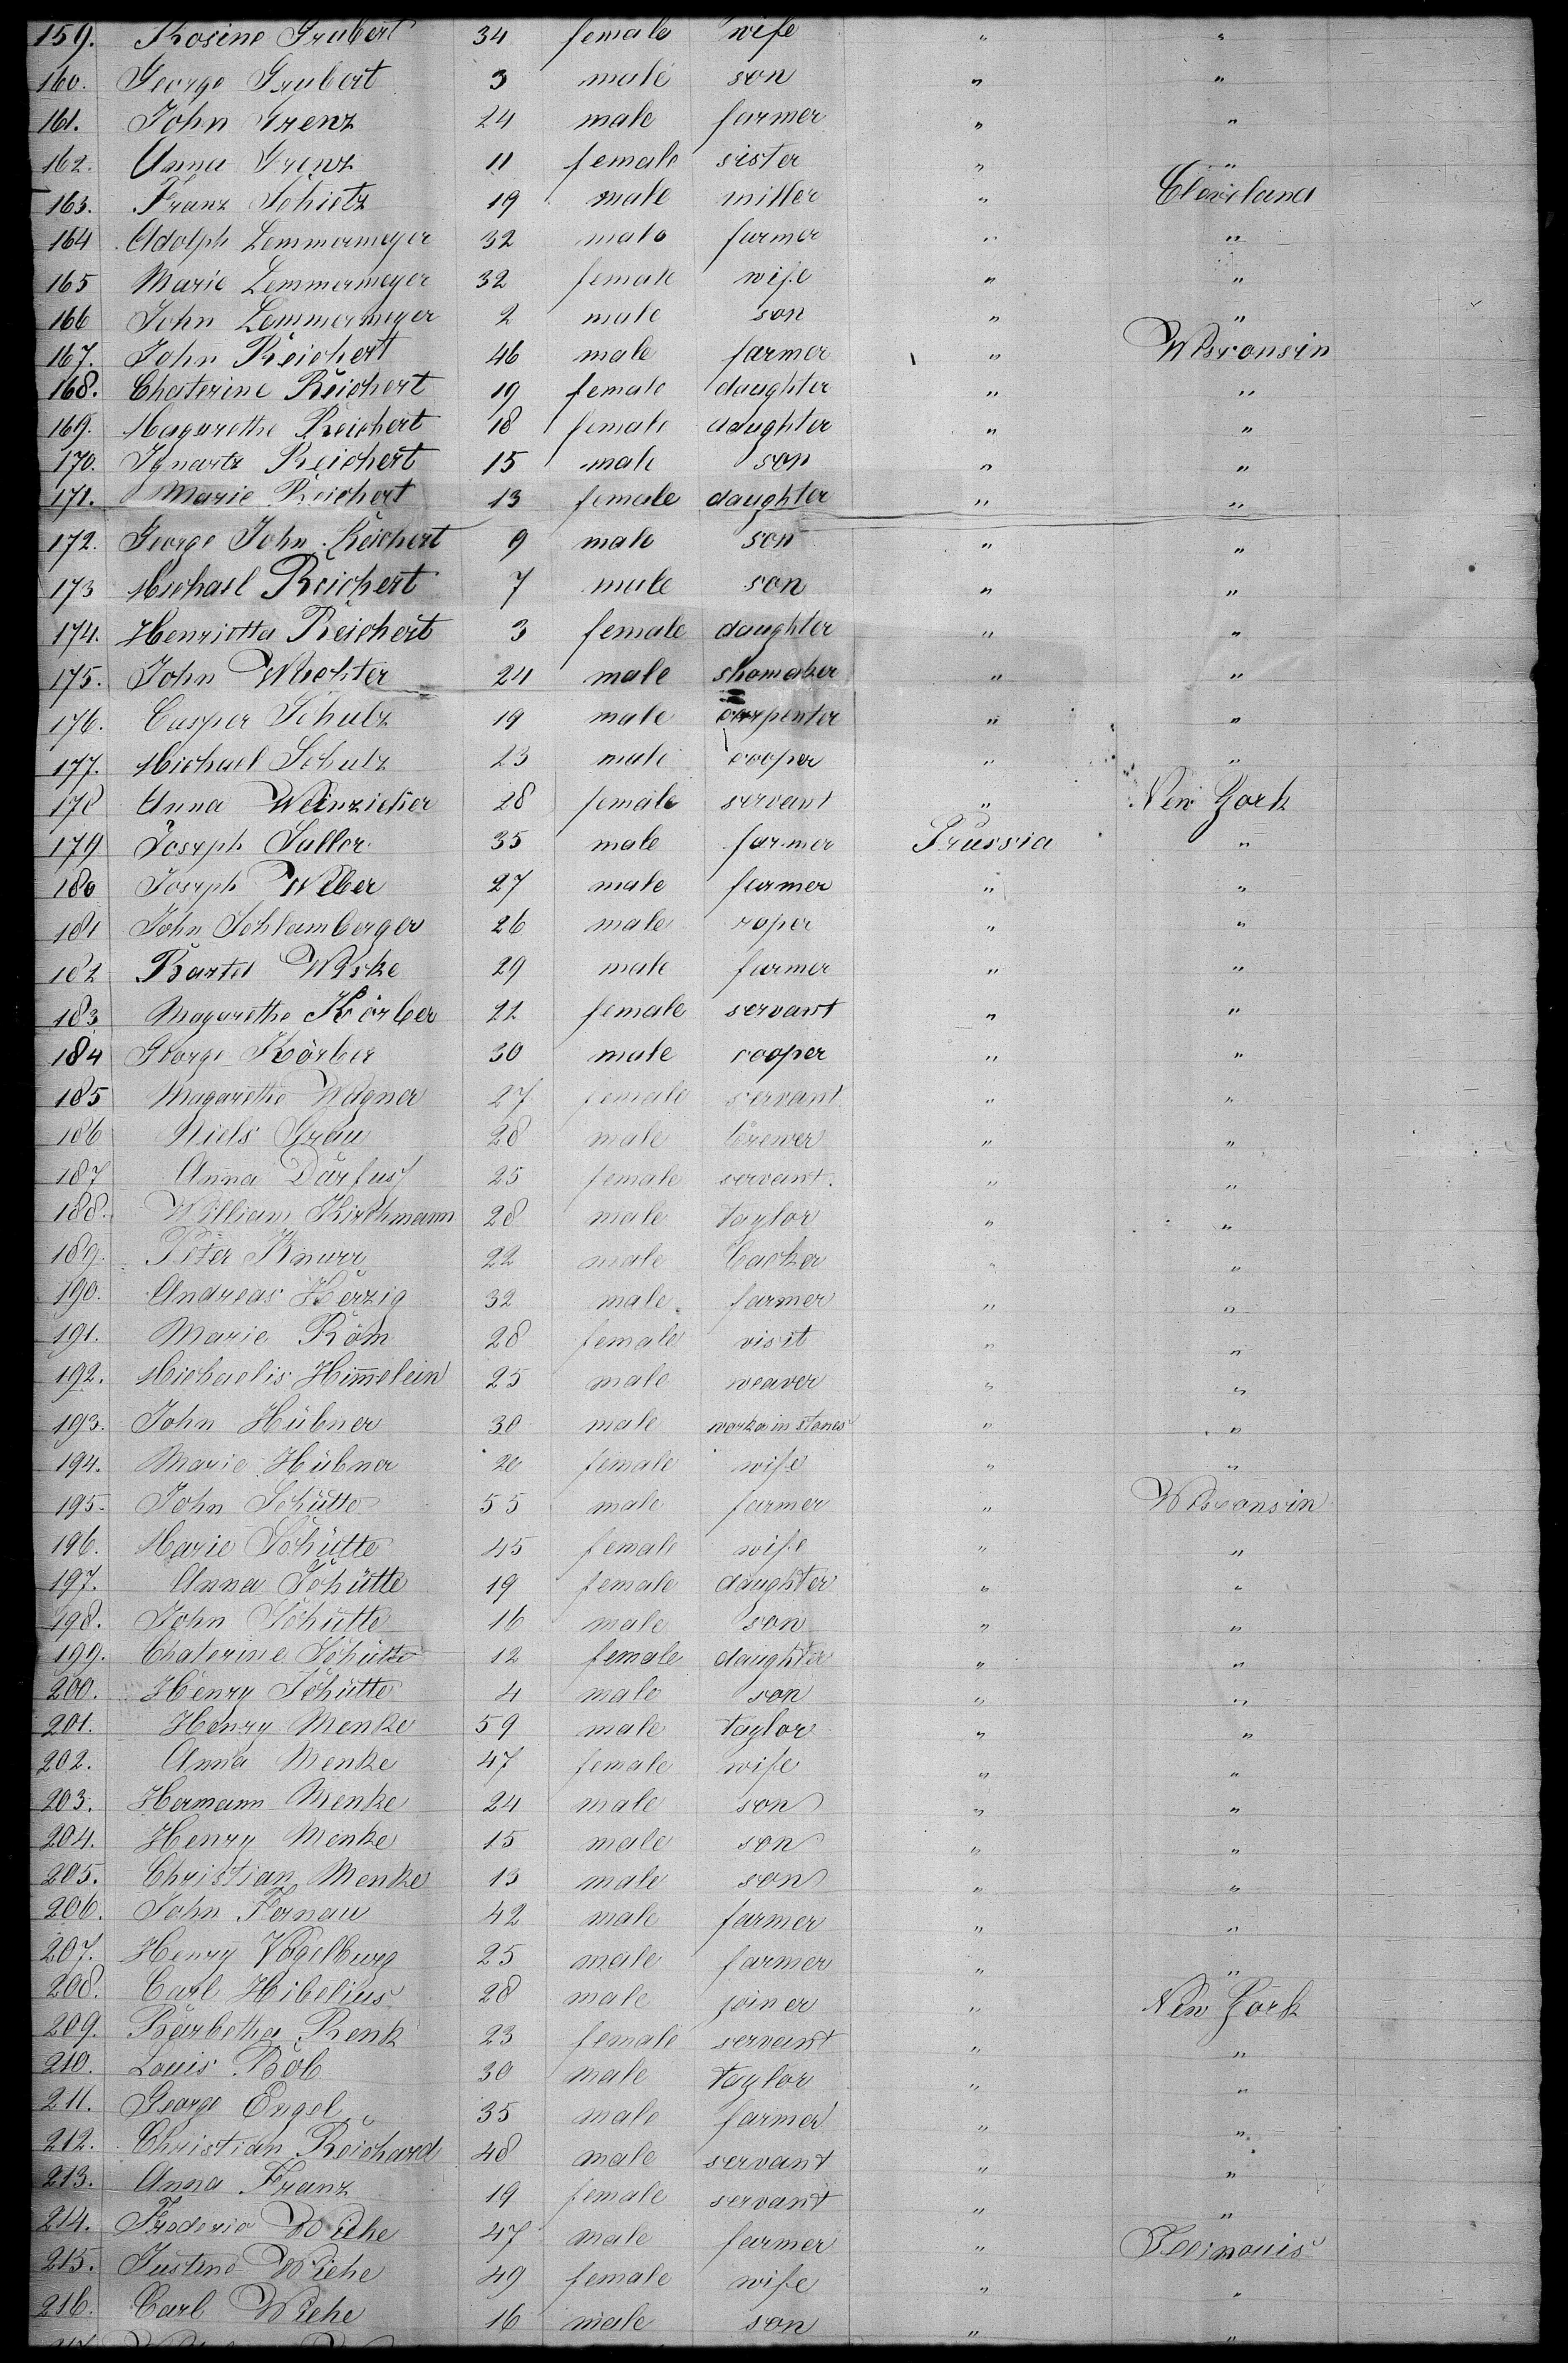 159. Rosine Grubert 34 female wife " "
160. George Grubert 3 male son " "
161. John Grenz 24 male farmer " "
162. Anna Grenz 11 female sister " "
163. Franz Schietz 19 male miller " Cleveland
164 Adolph Lemmermeyer 32 male farmer " "
165 Marie Lemmermeyer 32 female wife " "
166 John Lemmermeyer 2 male son " "
167. John Reichert 46 male farmer " Wisconsin
168. Chaterine Reichert 19 female daughter " "
169. Magarethe Reichert 18 female daughter " "
170. Ignartz Reichert 15 male son " "
171. Marie Reichert 13 female daughter " "
172. George John Reichert 9 male son " "
173 Michael Reichert 7 male son " "
174. Henrietta Reichert 3 female daughter " "
175. John 24 male shomaker " "
176. Casper Schulz 19 male carpenter " "
177. Michael Schulz 23 male cooper " "
178 Anna Weinzicher 28 female servant " New York
179 Joseph Saller 35 male farmer Prussia "
180 Joseph Weber 27 male farmer " "
181 John Schlamberger 26 male roper " "
182 Bartel Wiske 29 male farmer " "
183 Magarethe Körber 22 female servant " "
184 George Körber 30 male cooper " "
185 Magarethe Wagner 27 female servant " "
186 Niels Grau 28 male brewer " "
187 Anna Darfus 25 female servant. " "
188. William Kirchmann 28 male taylor " "
189. Peter Knurr 22 male backer " "
190. Andreas Herzig 32 male farmer " "
191. Marie Röm 28 female visit " "
192. Michaelis Him̅elein 25 male weaver " "
193. John Hübner 30 male worker in stones " "
194. Marie Hübner 20 female wife " "
195. John Schütte 55 male farmer " Wisconsin
196. Marie Schütte 45 female wife " "
197. Anna Schütte 19 female daughter " "
198. John Schütte 16 male son " "
199. Chaterine Schütte 12 female daughter " "
200. Henry Schütte 4 male son " "
201. Henry Menke 59 male taylor " "
202. Anna Menke 47 female wife " "
203. Hermann Menke 24 male son " "
204. Henry Menke 15 male son " "
205. Christian Menke 13 male son " "
206. John Fernau 42 male farmer " "
207. Henry Vogelburg 25 male farmer " "
208. Carl Hibelius 28 male joiner " New York
209. Barbetha Renk 23 female servant " "
210. Louis Böb 30 male taylor " "
211. George Engel 35 male farmer " "
212. Christian Reichard 48 male servant " "
213. Anna Franz 19 female servant " "
214. Frederic Wiehe 47 male farmer "
215. Justine Wiehe 49 female wife " "
216. Carl Wiehe 16 male son " "